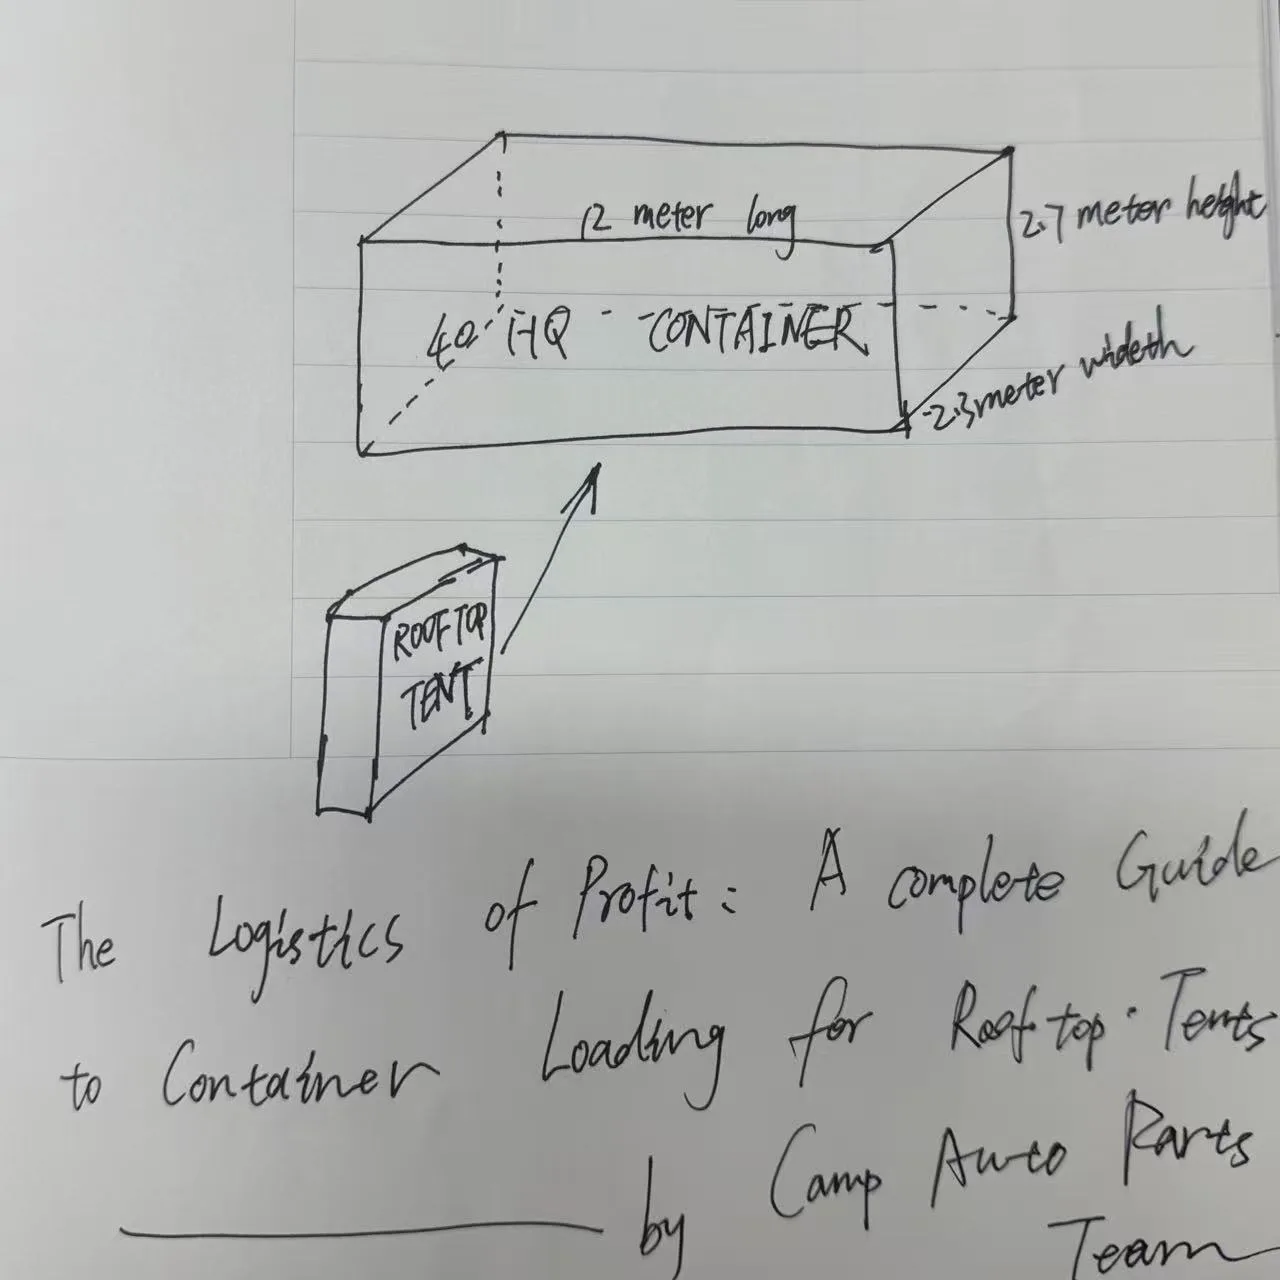 12 meter long
2.7 meter height
40 HQ CONTAINER
2.3 meter wideth
ROOFTOP
TENT
The Logistics of Profit: A complete Guide
to Container Loading for Rooftop Tents
by Camp Auto Parts
Team